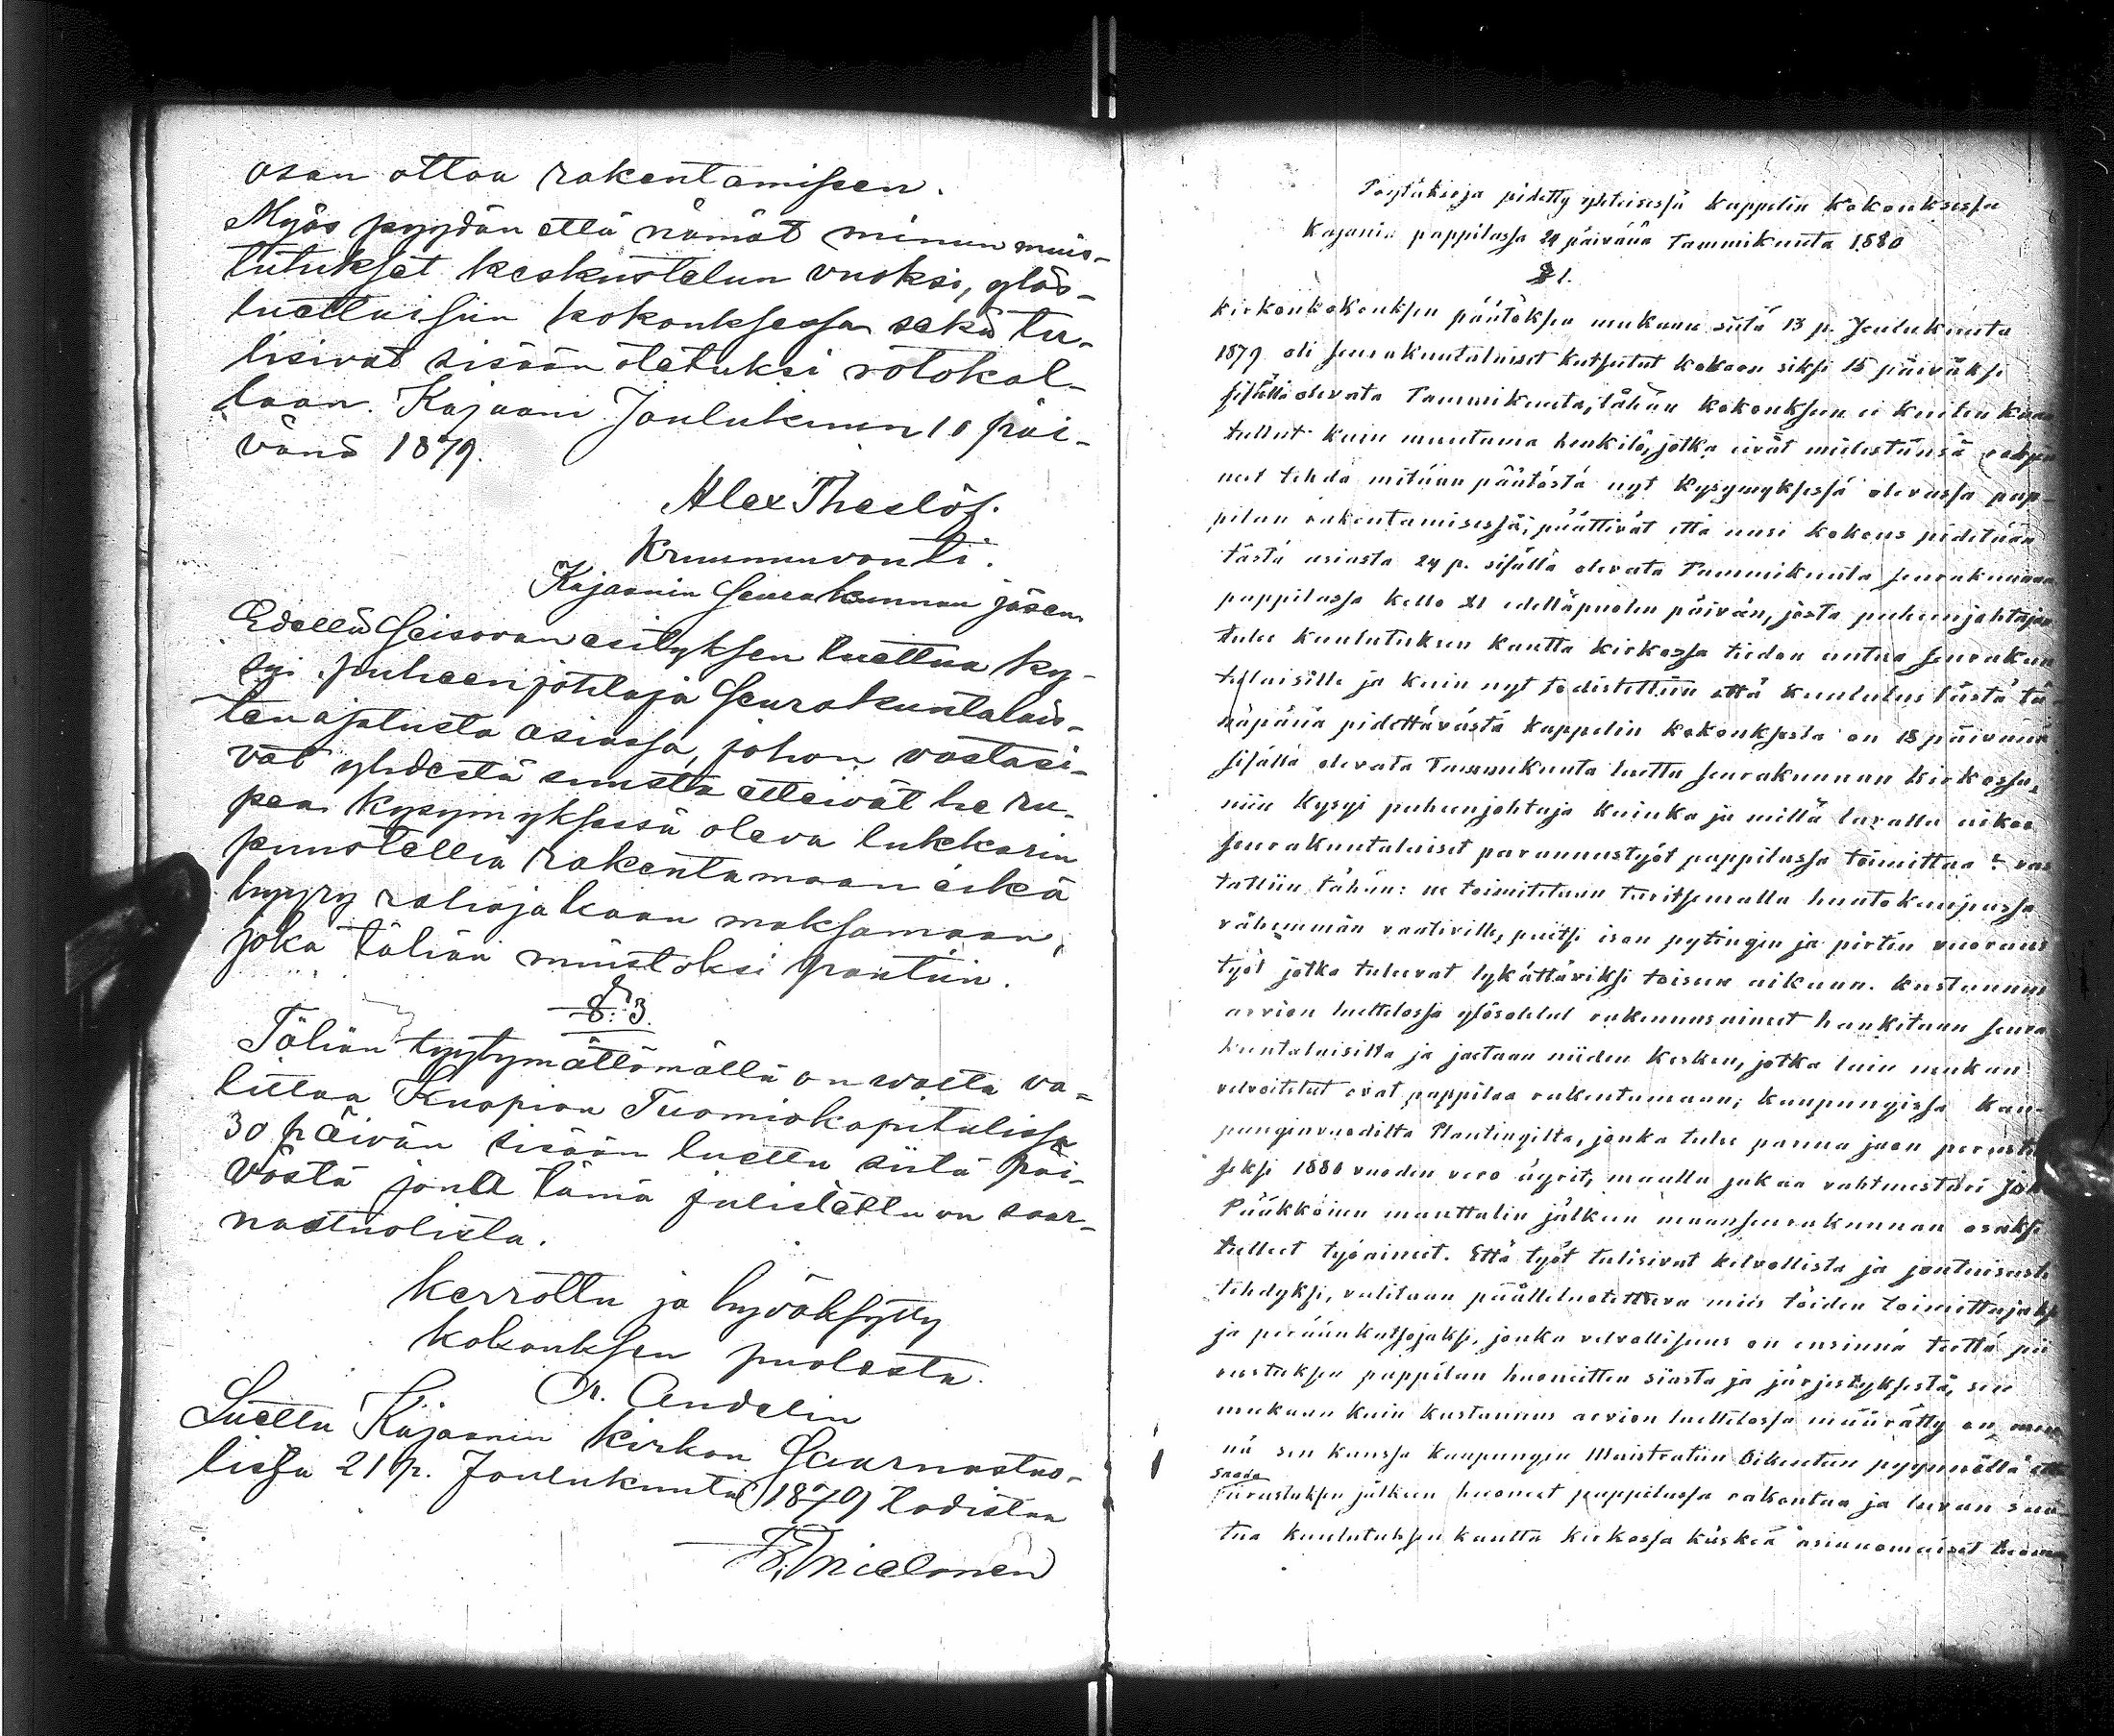 osan ottaa rakentamiseen.
Myös pyydän että nämät minun muis-
tutukset keskustelun vuoksi, ylös-
luettaisiin kokouksessa sekä tu-
lisivat sisään otetuksi
laan. Kajaani Joulukuun 10 päi-
vänä 1879.
Alex Theslöf.
Kruununvouti.
Kajaanin Seurakunnan jäsen
Edellä seisovan esityksen luettua ky-
syi puheenjohtaja Seurakuntalais-
ten ajatusta asiassa, johon vastasi-
vat yhdestä suusta etteivät he ru-
pea kysymyksessä oleva lukkarin
puustellia rakentamaan eikä
hyyry rahaakaan maksamaan,
joka tähän muistoksi pantiin.
§ 3.
Tähän tyytymättömällä on valta va-
littaa Kuopion Tuomiokapitulissa
30 päivän sisään luettu siitä päi-
västä jona tämä julistettu on saar-
nastuolista.
kerrottu ja hyväksytty
kokouksen puolesta.
A. Andelin
Luettu Kajaanin kirkon Saarnastuo-
lissa 21 p. Joulukuuta 1879 todistaa
Mielonen
Pöytäkirja pidetty yhteisessä kappelin kokouksessa
Kajanin pappilassa 24 päivänä Tammikuuta 1880
§ 1.
kirkonkokouksen päätöksen mukaan siitä 13 p. Joulukuuta
1879 oli seurakuntalaiset kutsutut kokoon siksi 15 päiväksi
sisällä olevata Tammikuuta, tähän kokouksen ei kuiten kaan
tullut kuin muutama henkilö, jotka eivät mielestänsä
neet tehdä mitään päätöstä nyt kysymyksessä olevassa pap-
pilan rakentamisessa; päättivät että uusi kokous pidetään
tästä asiasta 24 p. sisällä olevata Tammikuuta seurakunnan
pappilassa kello 11 edelläpuolen päivän, josta puheenjohtajan
tulee kuulutuksen kautta kirkossa tiedon antaa seurakun
talaisille ja kuin nyt todistettiin että kuulutus tästä tä-
näpänä pidettävästä kappelin kokouksesta on 18 päivänä
sisällä olevata Tammikuuta luettu seurakunnan kirkossa,
niin kysyi puheenjohtaja kuinka ja millä tavalla aikoo
seurakuntalaiset parannustyöt pappilassa toimittaa? vas
tattiin tähän: ne toimitetaan taritsemalla huutokaupassa
vähemmän vaativille, paitsi ison pytingin ja pirtin vuoraus
työt jotka tulevat lykättäviksi toiseen aikaan. kustannus
arvion luettelossa ylösotetut rakennusaineet hankitaan seura
kuntalaisilta ja jaetaan niiden kesken, jotka lain mukaan
velvoitetut ovat pappilaa rakentamaan; kaupungissa kau-
punginvoudilta Plantingilta, jonka tulee panna jaon perustu
seksi 1880 vuoden vero äyrit, maalla jakaa vahtmestari
Pääkkönen manttalin jälkeen maanseurakunnan osaksi
tulleet työaineet. Että työt tulisivat kelvollista ja
tehdyksi, valitaan päälleluotettava mies töiden toimittajaksi
ja peräänkatsojaksi, jonka velvollisuus on ensinnä teettä pii
rustuksen pappilan huoneitten siasta ja järjestyksestä, sen
mukaan kuin kustannus arvion luettelossa määrätty on,
nä sen kanssa kaupungin Maistraatiin Oikeuteen pyynnöllä että
saada
piirustuksen jälkeen huoneet pappilassa rakentaa ja luvan saa
tua kuulutuksen kautta kirkossa käskeä asianomaiset